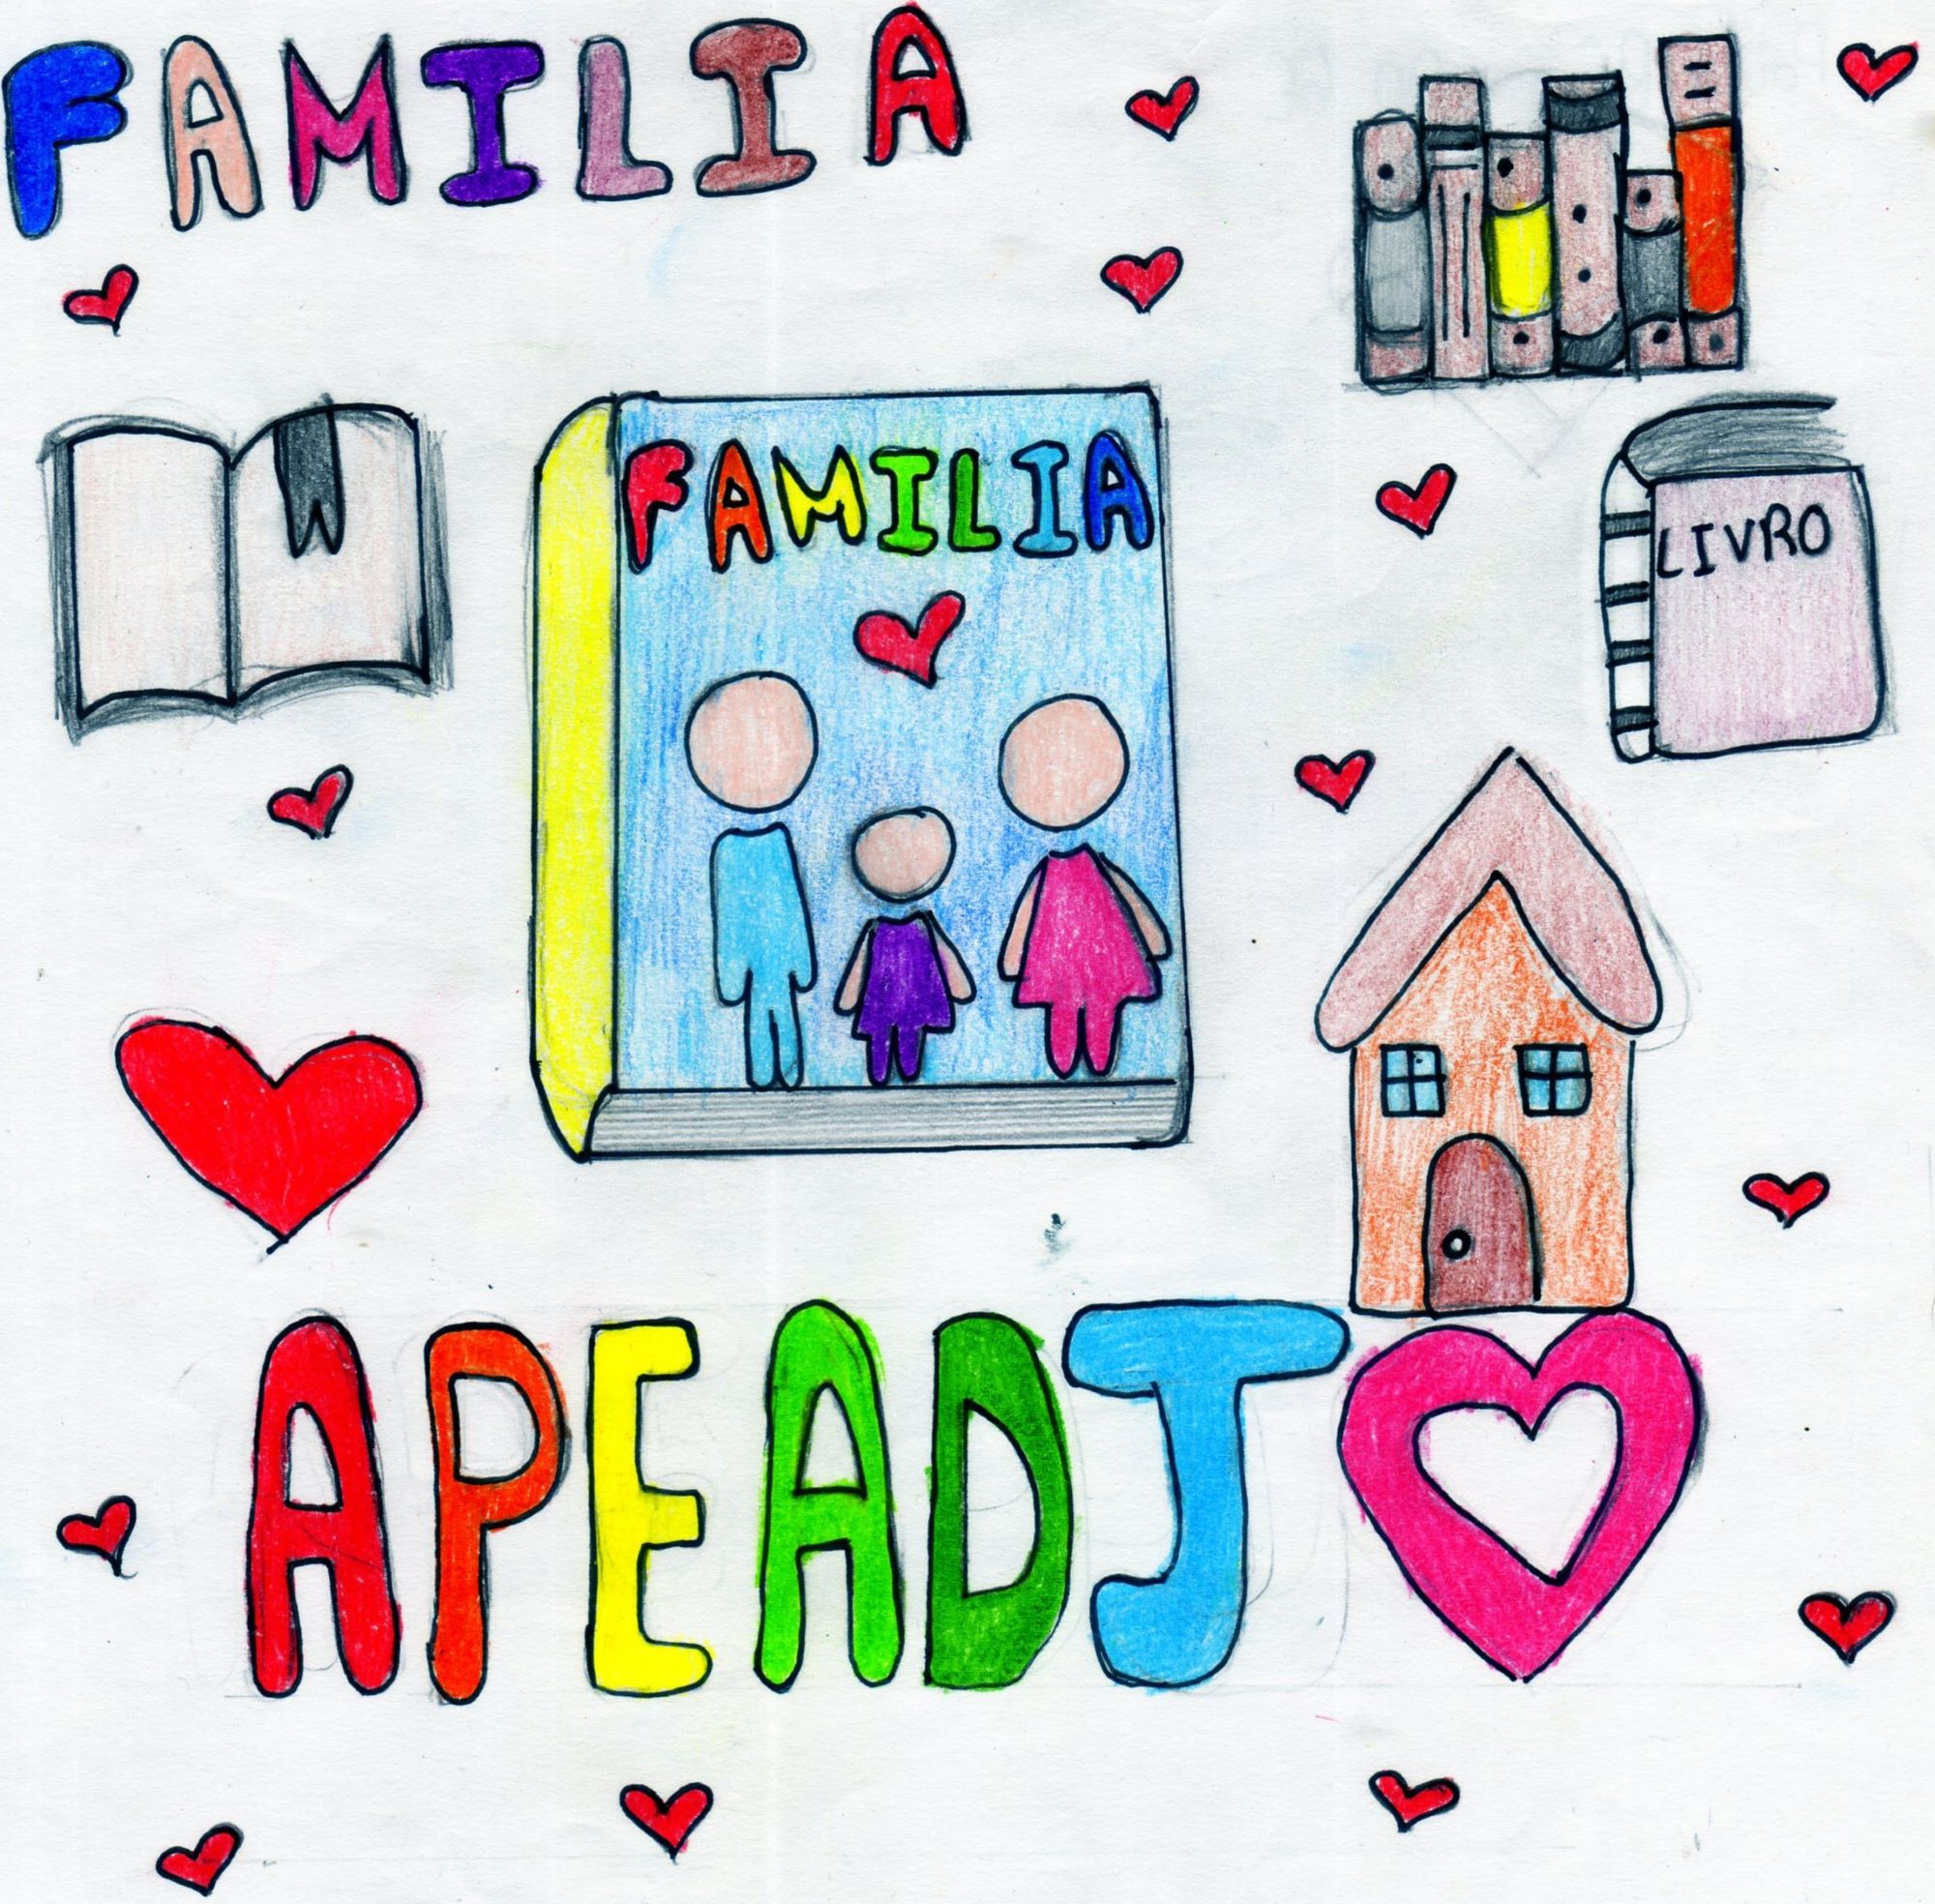 FAMILIA
FAMILIA
LIVRO
APEADJ